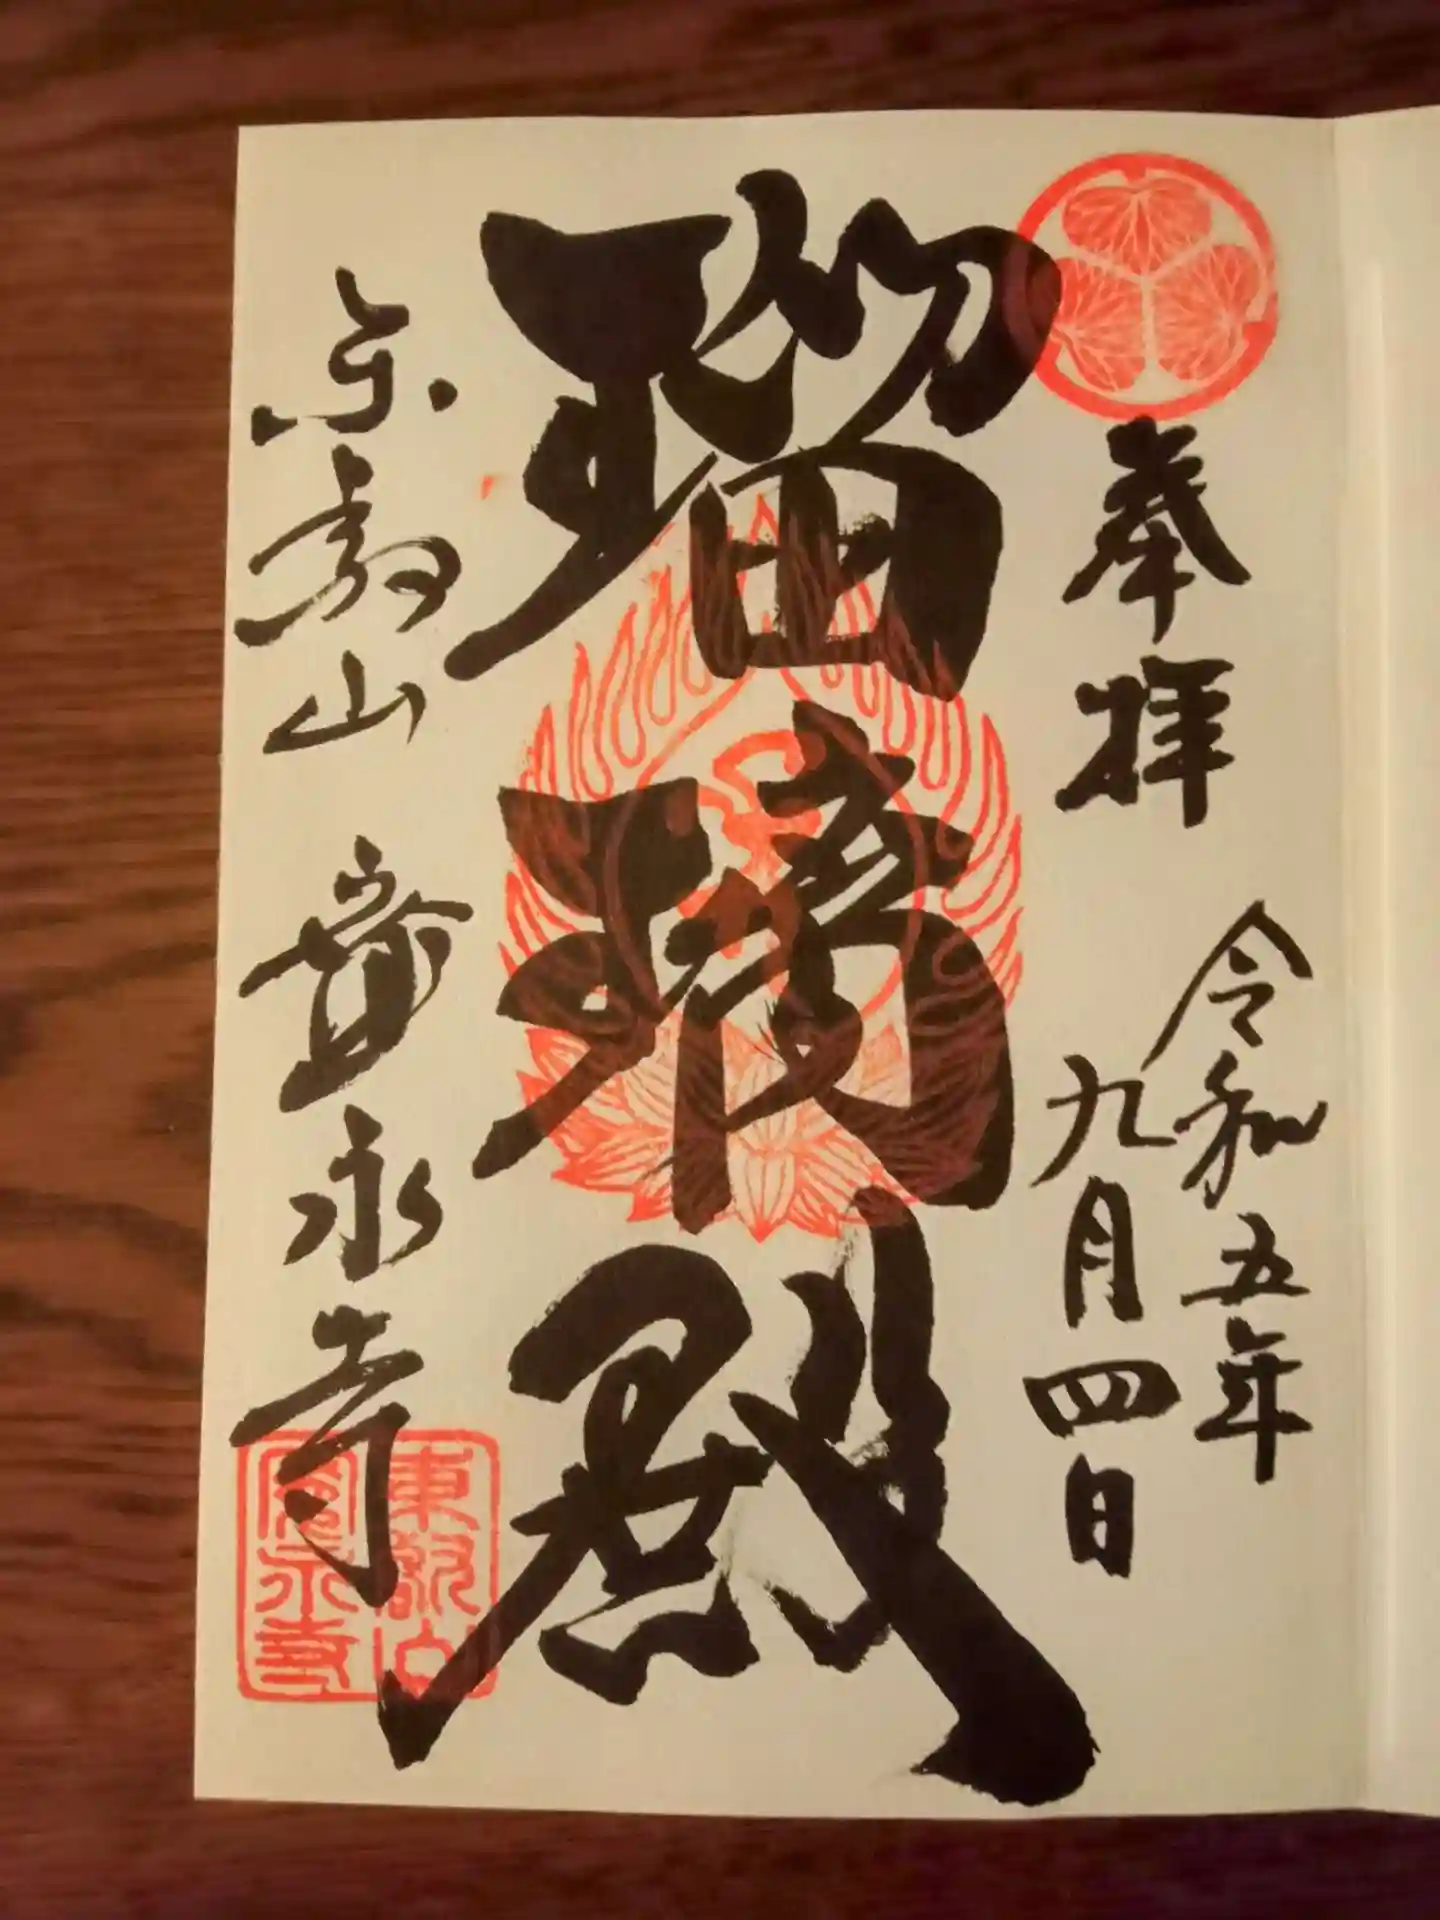 奉拝
令和五年
九月四日
瑠璃殿
東叡山 寛永寺
東叡山
寛永寺